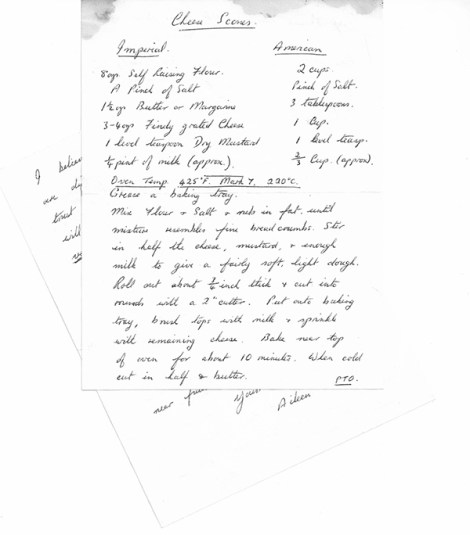 Cheese Scones.
Imperial. American
8ozs. Self Raising Flour. 2 cups.
A Pinch of Salt Pinch of Salt.
1½ozs Butter or Margarine 3 tablespoons.
3-4ozs Finely grated Cheese 1 Cup.
1 level teaspoon Dry Mustard 1 level teasp.
¼ pint of milk (approx). ⅔ Cup. (approx).
Oven Temp. 425°F. Mark 7. 220°C.
Grease a baking tray.
Mix Flour & Salt & rub in fat. until
mixture resembles fine breadcrumbs. Stir
in half the cheese, mustard, & enough
milk to give a fairly soft, light dough.
Roll out about ¾ inch thick & cut into
rounds with a 2" cutter. Put onto baking
tray, brush tops with milk & sprinkle
with remaining cheese. Bake near top
of oven for about 10 minutes. When cold
cut in half & butter.
PTO.
I believe
are
trust
will
near
Your
Aileen